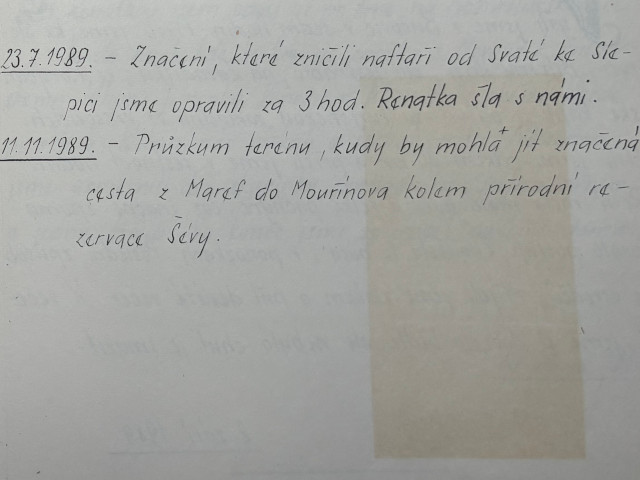 23.7.1989. – Značení, které zničili naftaři od Svaté ke Sle-
pici jsme opravili za 3 hod. Renatka šla s námi.
11.11.1989. – Průzkum terénu, kudy by mohla+ jít značená
cesta z Maref do Mouřínova kolem přírodní re-
zervace Šévy.